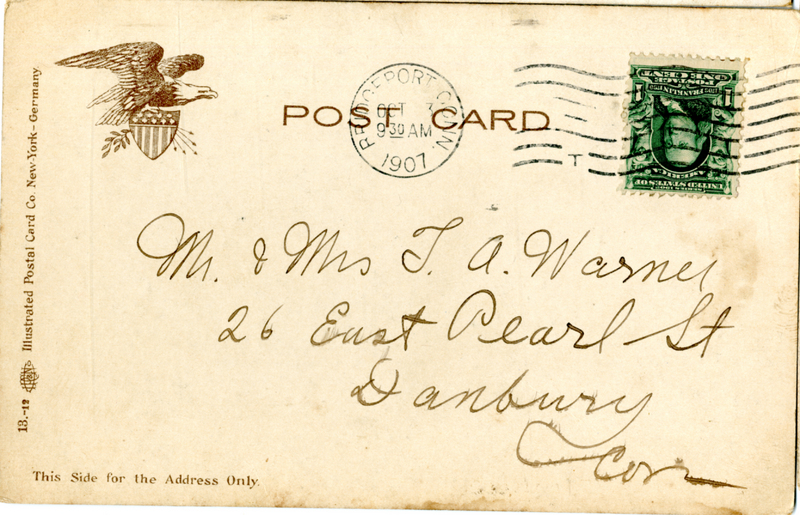 POST CARD
BRIDGEPORT CONN.
OCT 3
9 30 AM
1907
T
ONE CENT
POSTAGE
FRANKLIN
1 1
UNITED STATES OF
AMERICA
Mr. & Mrs T. A. Warner
26 East Pearl St
Danbury
Conn
13.-12 Illustrated Postal Card Co. New-York-Germany
This Side for the Address Only.